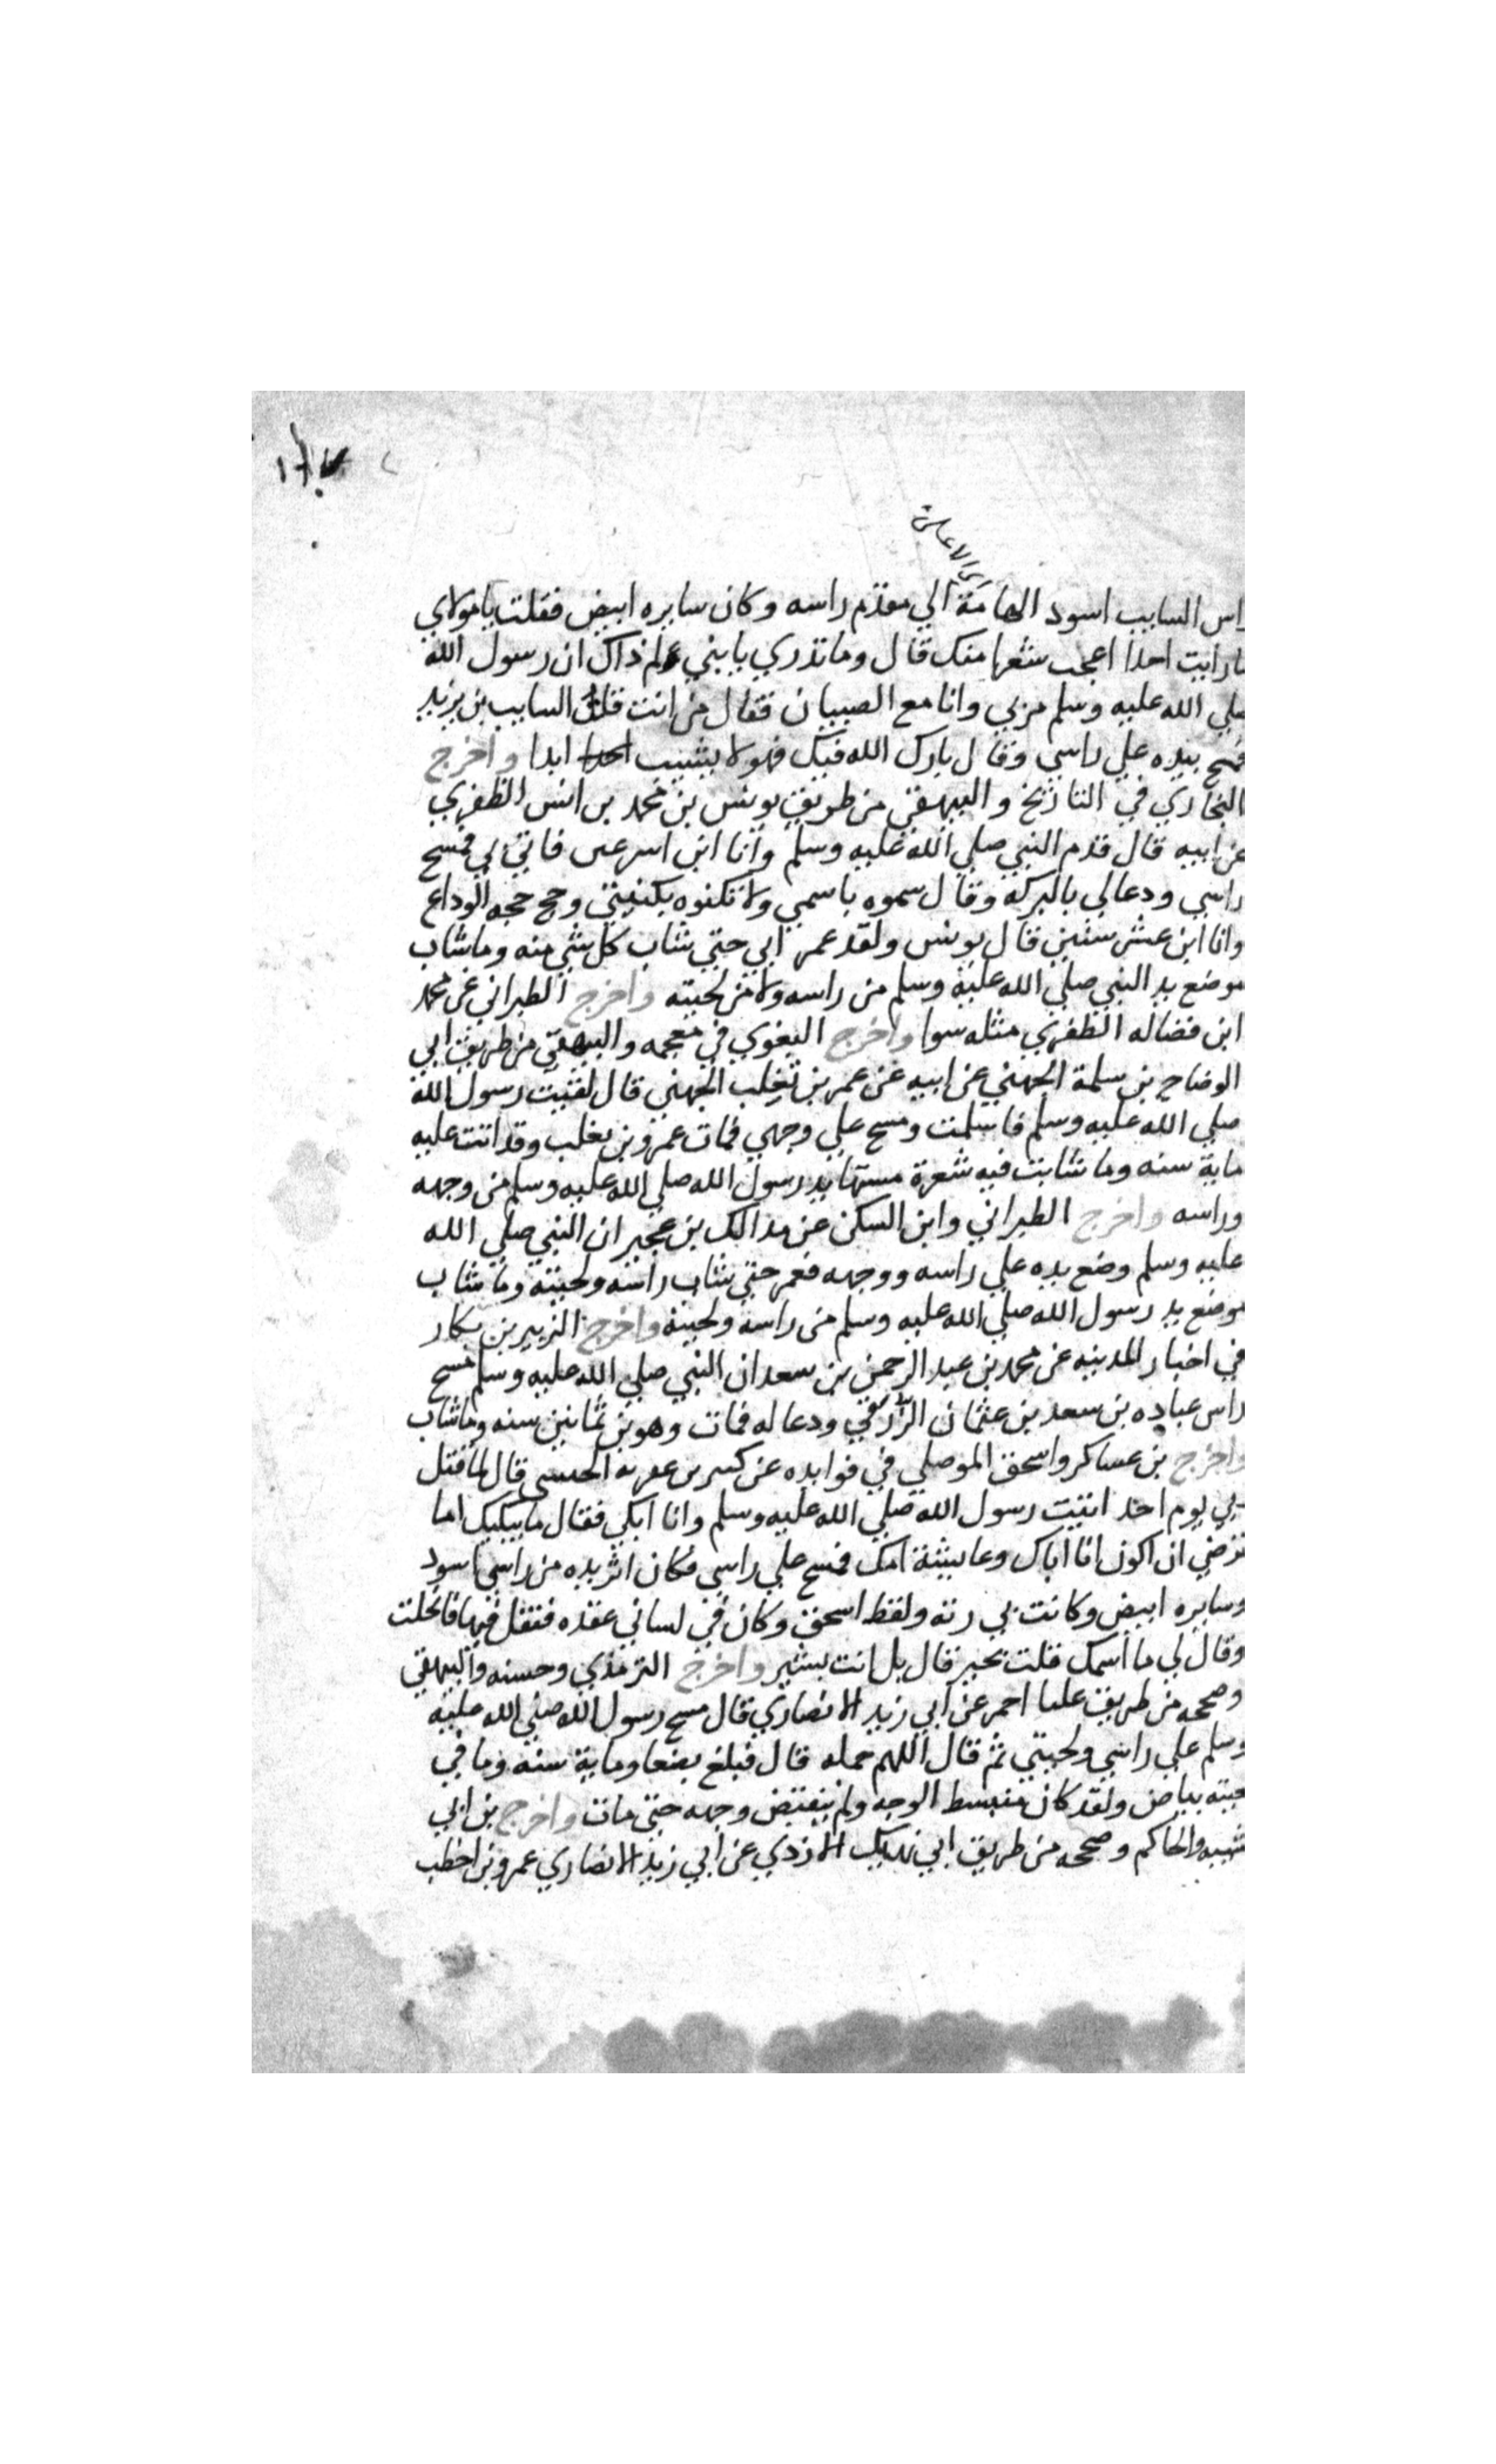 راس السايب اسود الهامة الي مقدم راسه وكان سايره ابيض فقلت يا مولاي
مارايت احدا اعجب شعرا منك قال وما تدري يا بني لم ذاك ان رسول الله
صلي الله عليه وسلم مر بي وانا مع الصبيان فقال من انت قلت السايب بن يزيد
فمسح بيده علي راسي وقال بارك الله فيك فهو لا يشيب ابدا واخرج
البخاري في التاريخ والبيهقي من طريق يونس بن محمد بن انس الظفري
عن ابيه قال قدم النبي صلي الله عليه وسلم وانا ابن اسبوعين فاتي بي فمسح
راسي ودعالي بالبركه وقال سموه باسمي ولا تكنوه بكنيتي وحج حجه الوداع
وانا ابن عشر سنين قال يونس ولقد عمر ابي حتي شاب كل شي منه وما شاب
موضع يد النبي صلي الله عليه وسلم من راسه ولا من لحيته واخرج الطبراني عن محمد
ابن فضاله الظفري مثله سوا واخرج البغوي في معجمه والبيهقي من طريق ابي
الوضاح بن سلمة الجهني عن ابيه عن عمر بن تغلب الجهني قال لقيت رسول الله
صلي الله عليه وسلم فاسلمت ومسح علي وجهي فمات عمرو بن تغلب وقد اتت عليه
ماية سنه وما شابت فيه شعرة مستها يد رسول الله صلي الله عليه وسلم من وجهه
وراسه واخرج الطبراني وابن السكن عن مالك بن عمير ان النبي صلي الله
عليه وسلم وضع يده علي راسه ووجهه فعمر حتي شاب راسه ولحيته وما شاب
موضع يد رسول الله صلي الله عليه وسلم من راسه ولحيته واخرج الزبير بن بكار
في اخبار المدينه عن محمد بن عبد الرحمن بن سعد ان النبي صلي الله عليه وسلم مسح
راس عباده بن سعد بن عثمان الزرقي ودعا له فمات وهو بن ثمانين سنه وما شاب
واخرج بن عساكر واسحق الموصلي في فوايده عن بشر بن عقربه الجهني قال لما قتل
ابي يوم احد اتيت رسول الله صلي الله عليه وسلم وانا ابكي فقال ما يبكيك اما
ترضي ان اكون انا اباك وعايشة امك فمسح علي راسي فكان اثر يده من راسي اسود
وسايره ابيض وكانت بي رته ولفظ اسحق وكان في لساني عقده فتفل فيها فانحلت
وقال لي ما اسمك قلت بحير قال بل انت بشير واخرج الترمذي وحسنه والبيهقي
وصححه من طريق علبا احمر عن ابي زيد الانصاري قال مسح رسول الله صلي الله عليه
وسلم علي راسي ولحيتي ثم قال اللهم جمله قال فبلغ بضعا وماية سنه وما في
لحيته بياض ولقد كان منبسط الوجه ولم ينقبض وجهه حتي مات واخرج بن ابي
شيبه والحاكم وصححه من طريق ابي نهيك الازدي عن ابي زيد الانصاري عمرو بن اخطب